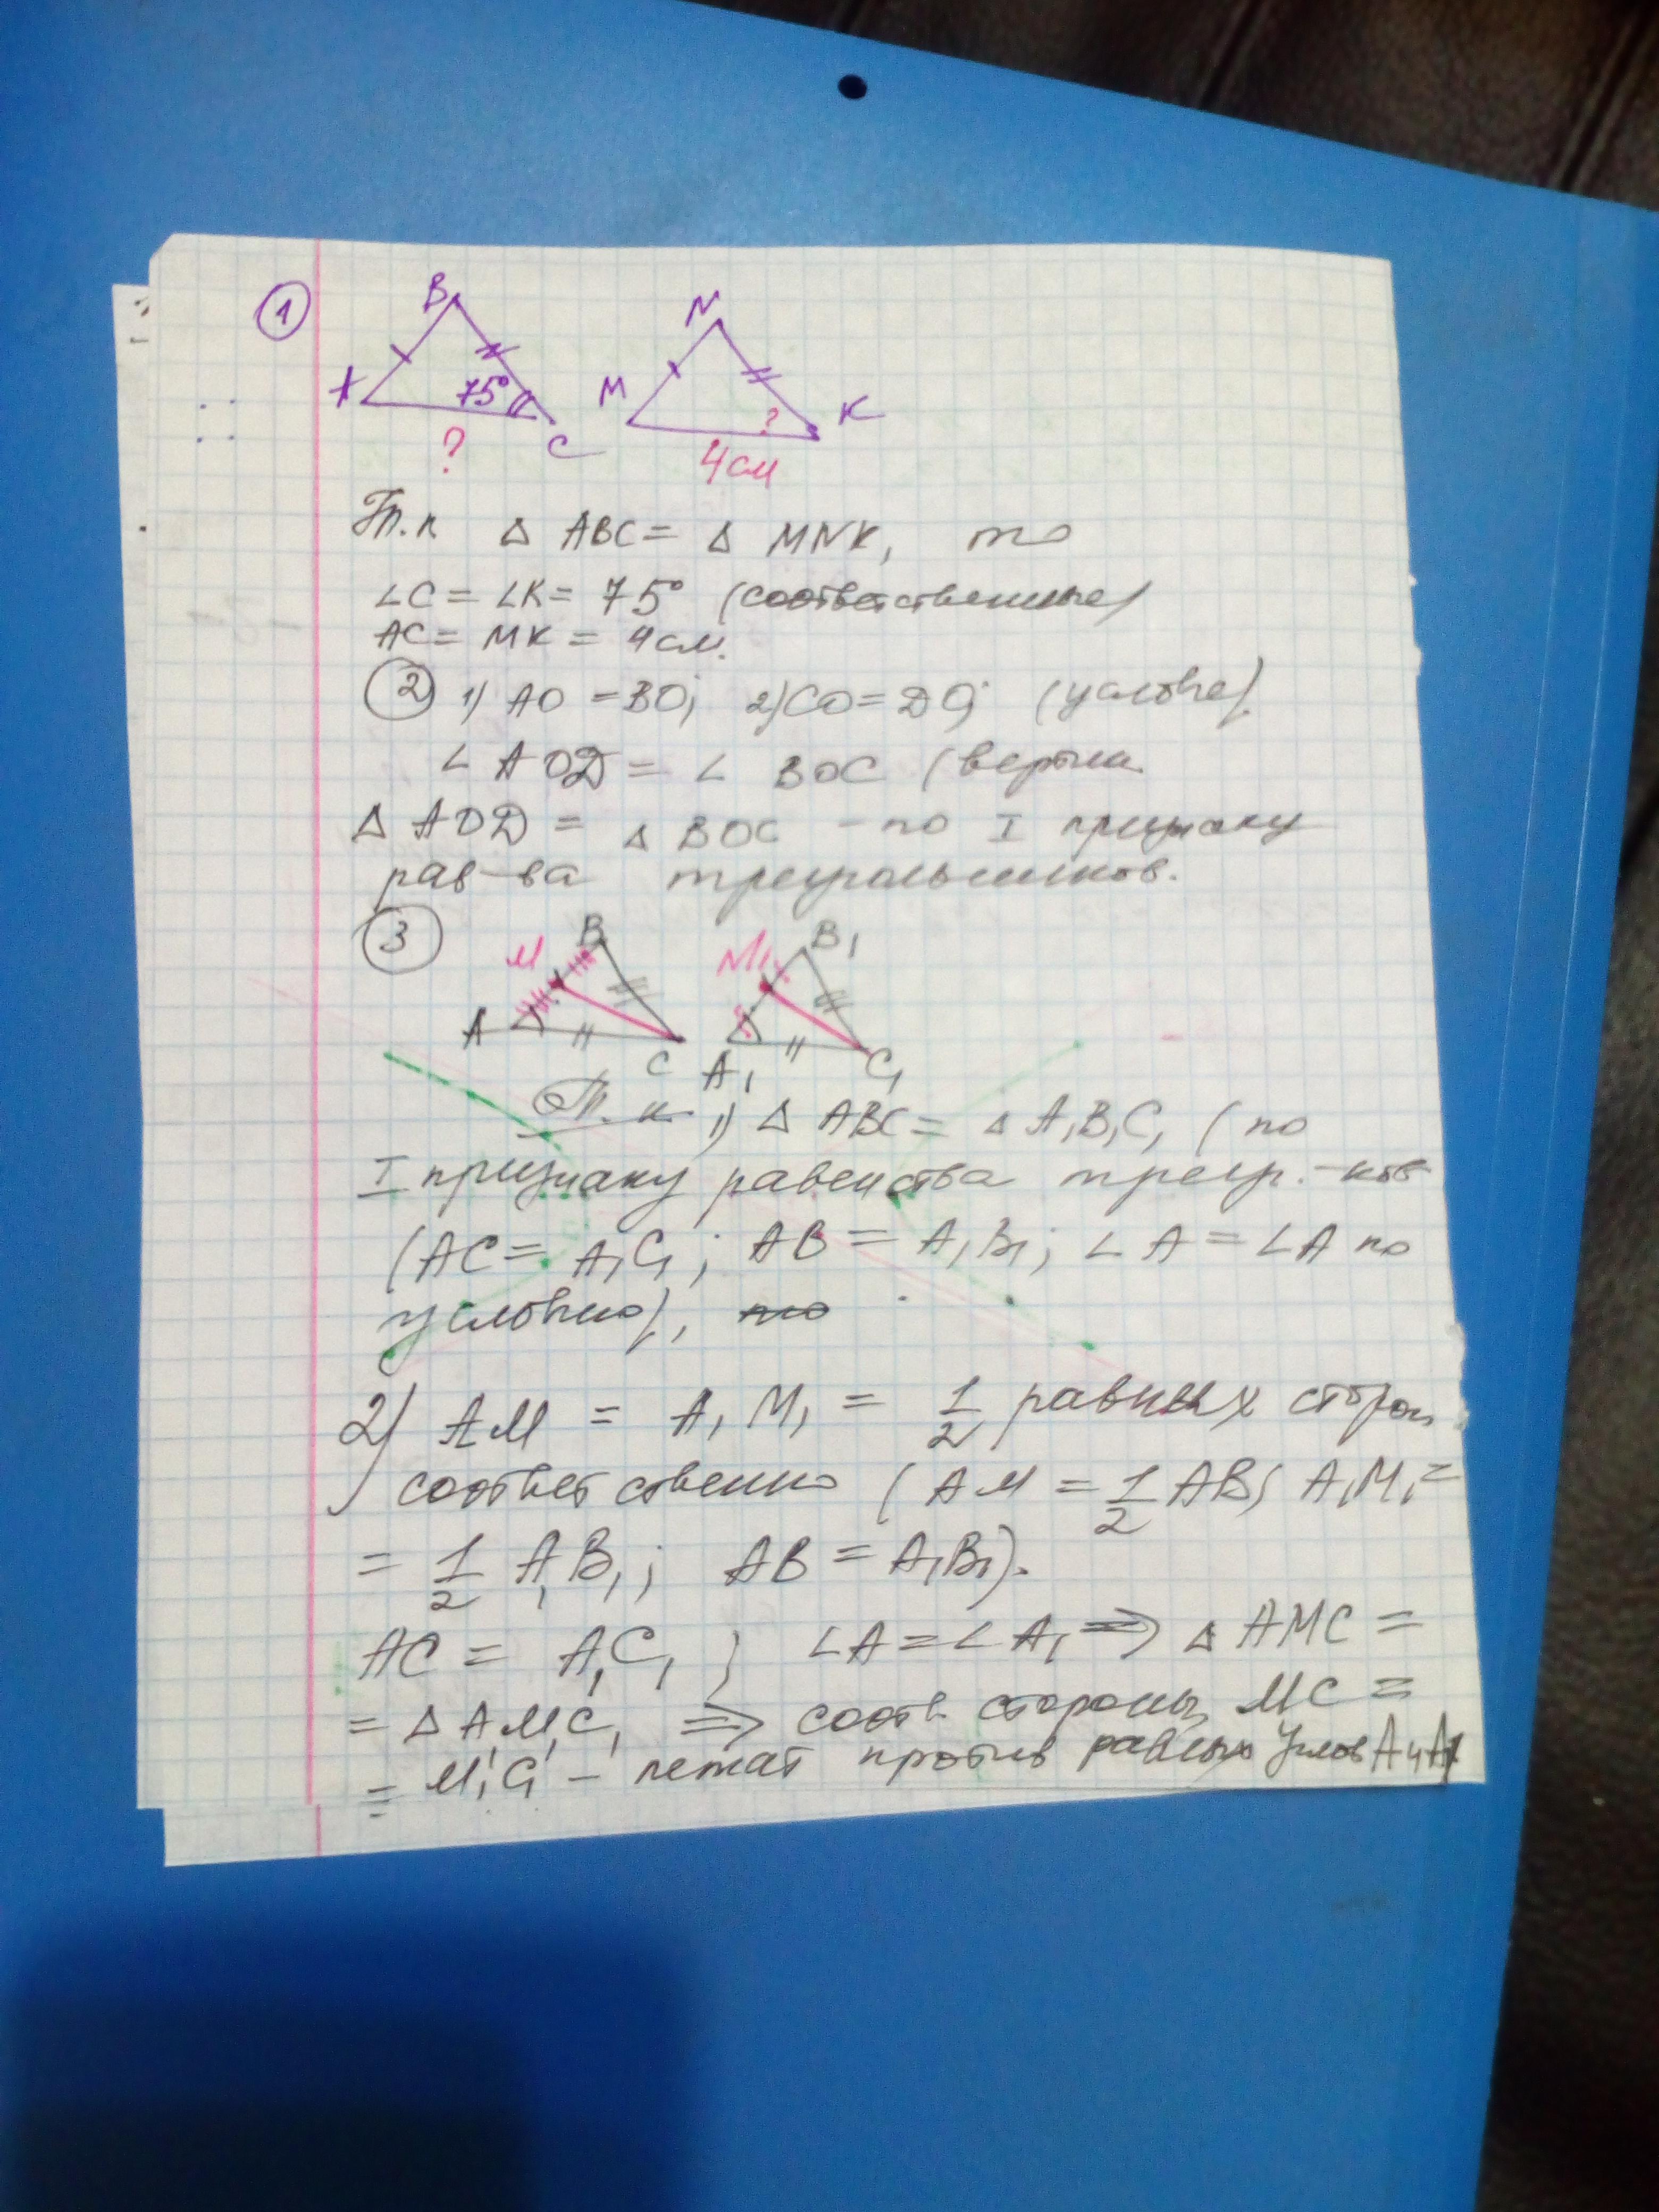 1
B
N
A
75°
C
M
?
K
?
4см
Т.к △ ABC = △ MNK, то
∠C = ∠K = 75° (соответственные)
AC = MK = 4 см.
2 1) AO = BO; 2) CO = DO; (условие).
∠ AOD = ∠ BOC (вертик
△ AOD = △ BOC - по I признаку
рав-ва треугольников.
3
M B
M₁ B₁
A C
A₁ C₁
Т.к 1) △ ABC = △ A₁B₁C₁ (по
I признаку равенства треуг.-ков
(AC = A₁C₁; AB = A₁B₁; ∠A = ∠A по
условию), то
2) AM = A₁M₁ = 1/2 равных сторон
соответственно (AM = 1/2 AB; A₁M₁ =
= 1/2 A₁B₁; AB = A₁B₁).
AC = A₁C₁; ∠A = ∠A₁ ⇒ △ AMC =
= △ A₁M₁C₁ ⇒ соотв. стороны MC =
= M₁C₁ - лежат против равных углов A и A₁